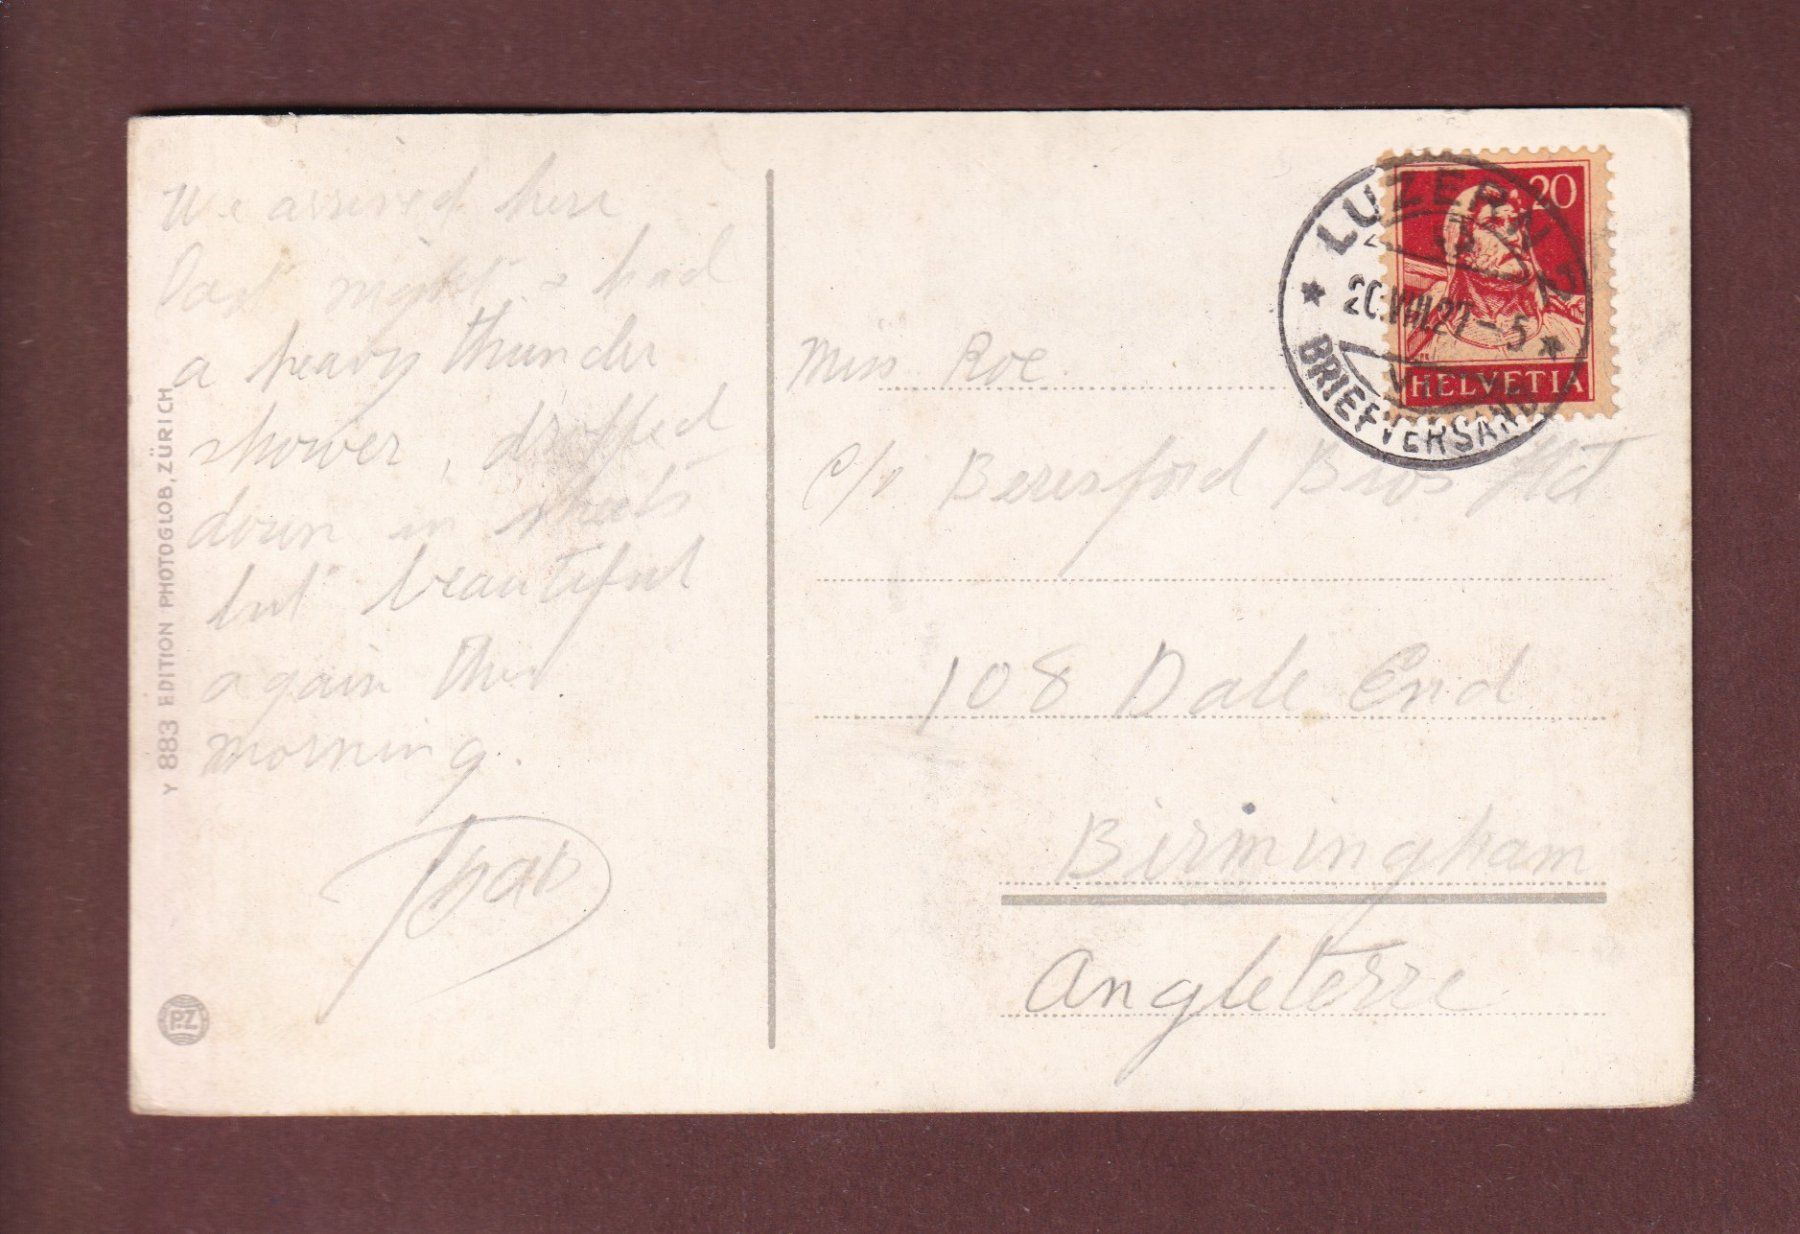 We arrived here
last night & had
a heavy thunder
shower, dropped
down in sheets
but beautiful
again this
morning.
Y 883 EDITION PHOTOGLOB, ZÜRICH
PZ
20
HELVETIA
LUZERN
VIII
BRIEFVERSAND
Miss Roe.
c/o Beresford Bros Ltd
108 Dale End
Birmingham
Angleterre